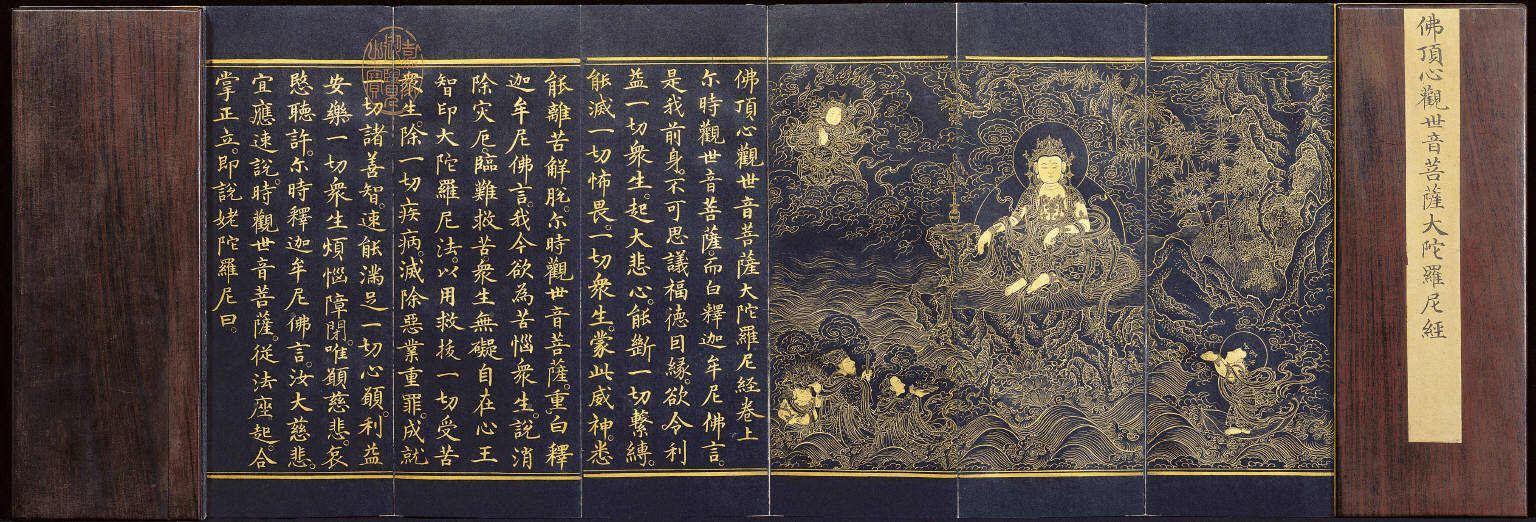 佛頂心觀世音菩薩大陀羅尼經
佛頂心觀世音菩薩大陀羅尼經卷上
尒時觀世音菩薩。而白釋迦牟尼佛言。
是我前身。不可思議福德因縁。欲令利
益一切衆生。起大悲心。能斷一切繫縛。
能滅一切怖畏。一切衆生。蒙此威神。悉
能離苦解脫。尒時觀世音菩薩。重白釋
迦牟尼佛言。我今欲為苦惱衆生。說消
除灾厄。臨難救苦衆生無礙自在心王
智印大陀羅尼法。以用救拔一切受苦
衆生。除一切疾病。滅除惡業重罪。成就
一切諸善智。速能滿足一切心願。利益
安樂一切衆生煩惱障閉。唯願慈悲。哀
愍聽許。尒時釋迦牟尼佛言。汝大慈悲。
宜應速說。時觀世音菩薩。從法座起。合
掌正立。即說姥陀羅尼曰。